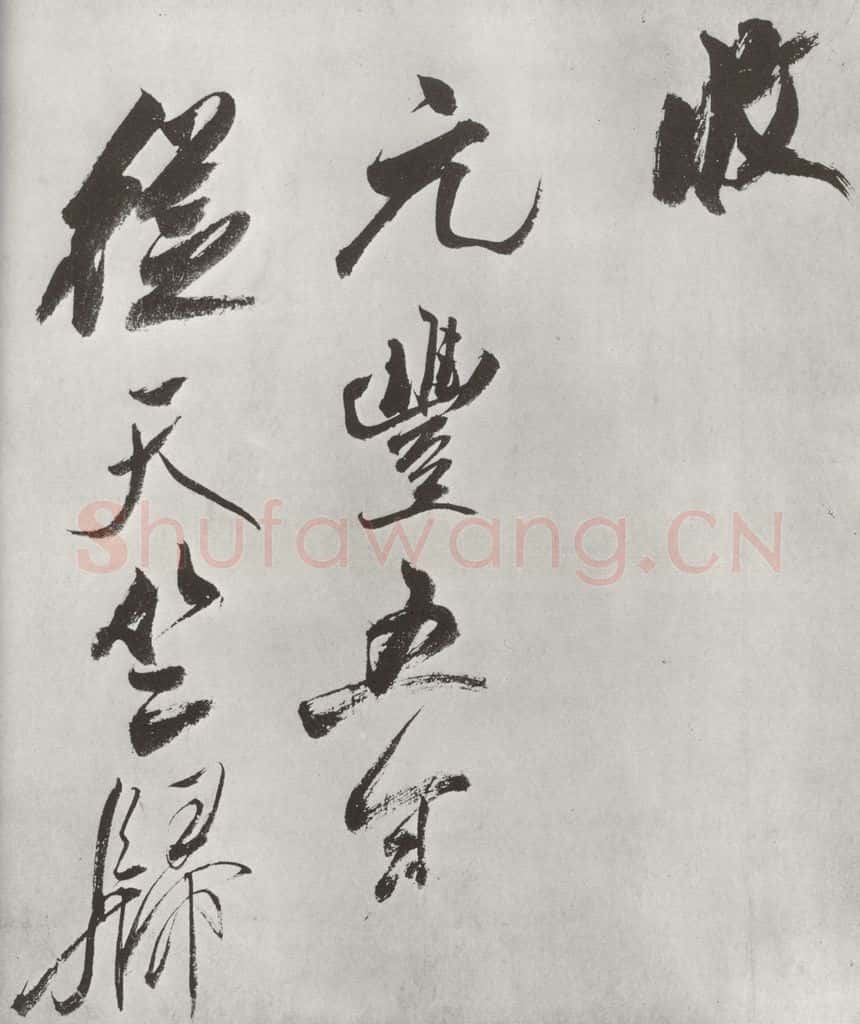 收
元豐五年
從天竺歸
Shufawang.CN